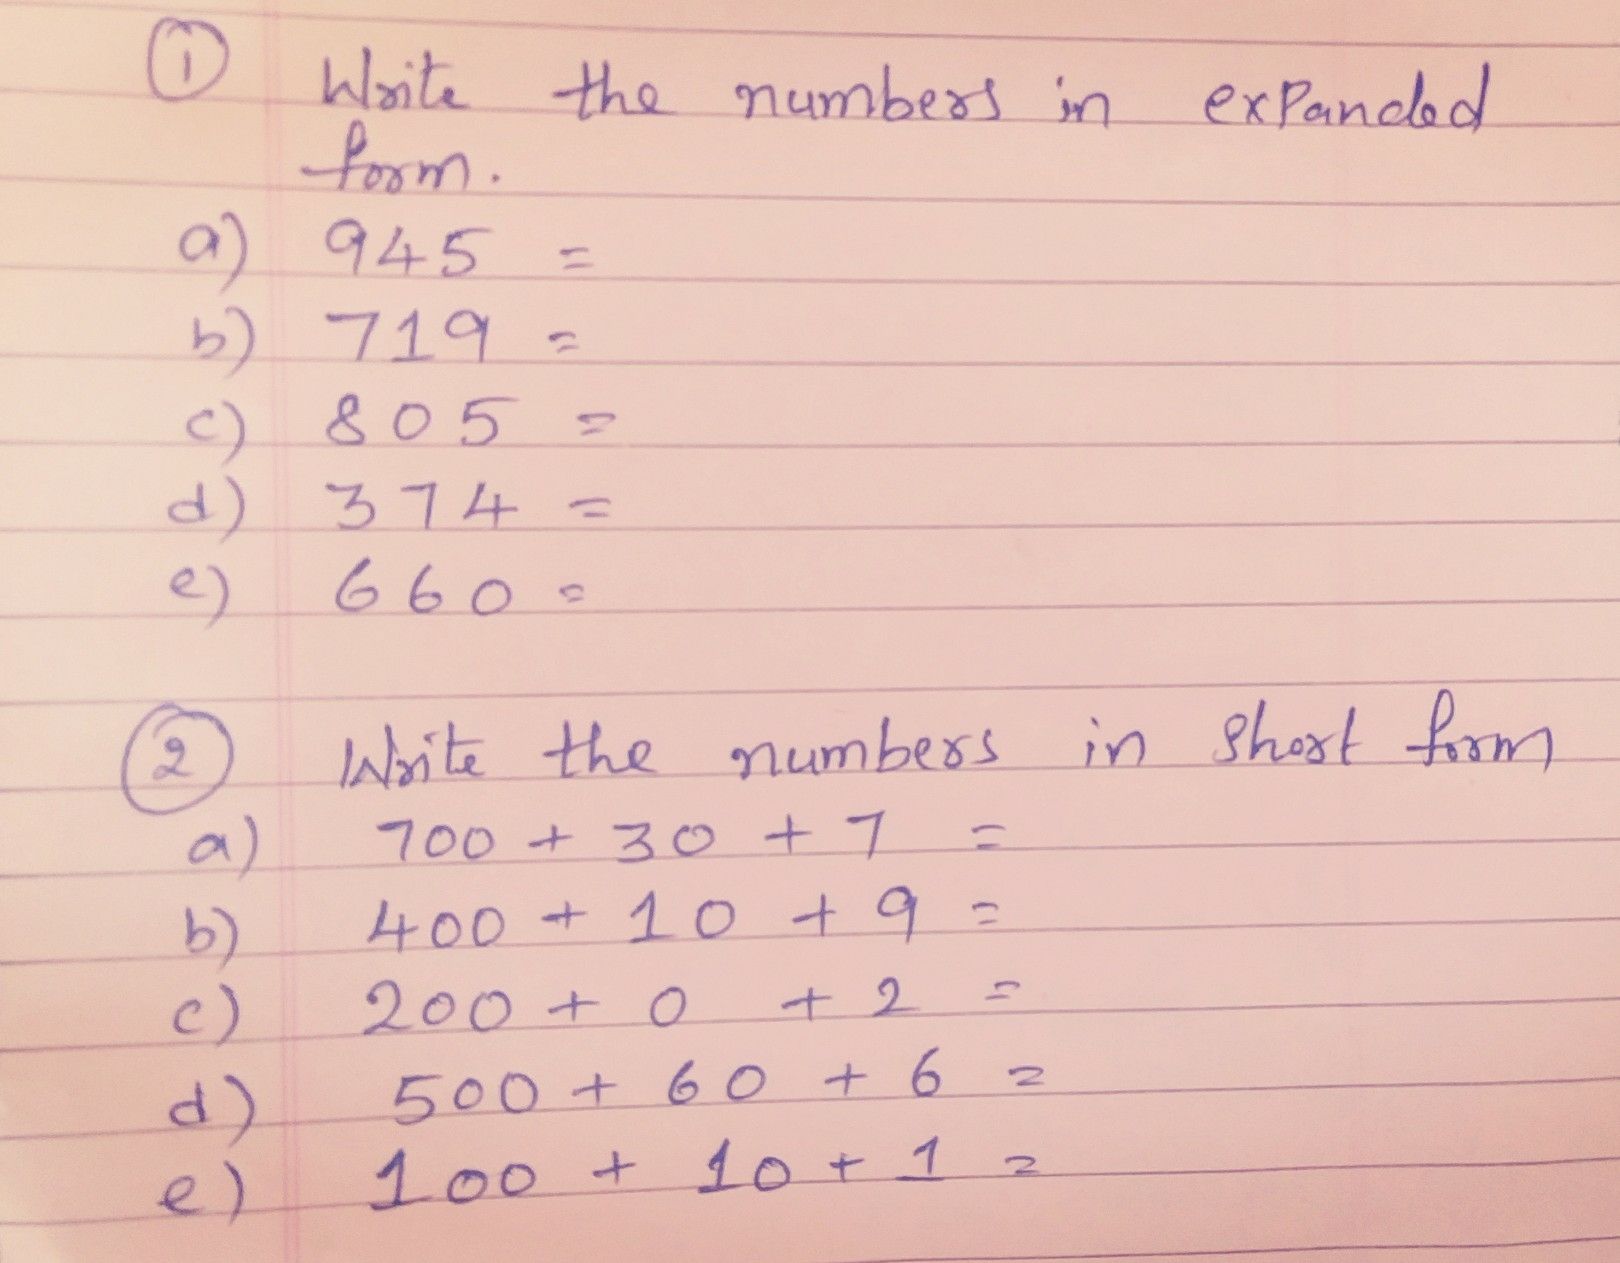 1 Write the numbers in expanded
form.
a) 945 =
b) 719 =
c) 805 =
d) 374 =
e) 660 =
2 Write the numbers in short form
a) 700 + 30 + 7 =
b) 400 + 10 + 9 =
c) 200 + 0 + 2 =
d) 500 + 60 + 6 =
e) 100 + 10 + 1 =